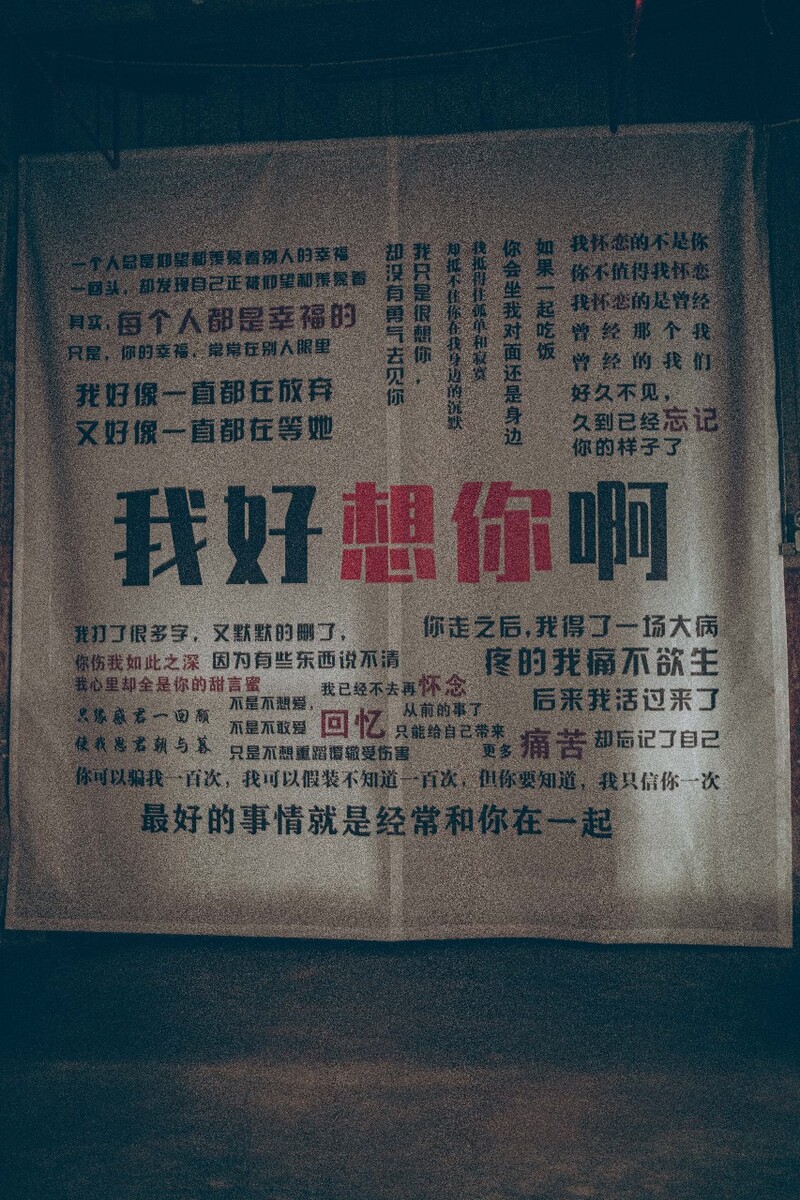 一个人总是仰望和羡慕着别人的幸福
一回头，却发现自己正被仰望和羡慕着
其实，每个人都是幸福的
只是，你的幸福，常常在别人眼里
我好像一直都在放弃
又好像一直都在等她
我只是很想你，
却没有勇气去见你
我抵得住孤单和寂寞
却抵不住你在我身边的沉默
如果一起吃饭
你会坐我对面还是身边
我怀恋的不是你
你不值得我怀恋
我怀恋的是曾经
曾经那个我
曾经的我们
好久不见，
久到已经忘记
你的样子了
我好想你啊
我打了很多字，又默默的删了，
因为有些东西说不清
你伤我如此之深
我心里却全是你的甜言蜜
只缘感君一回顾
使我思君朝与暮
不是不想爱，
不是不敢爱
只是不想重蹈覆辙受伤害
我已经不去再怀念
从前的事了
回忆只能给自己带来
更多痛苦
你走之后，我得了一场大病
疼的我痛不欲生
后来我活过来了
却忘记了自己
你可以骗我一百次，我可以假装不知道一百次，但你要知道，我只信你一次
最好的事情就是经常和你在一起